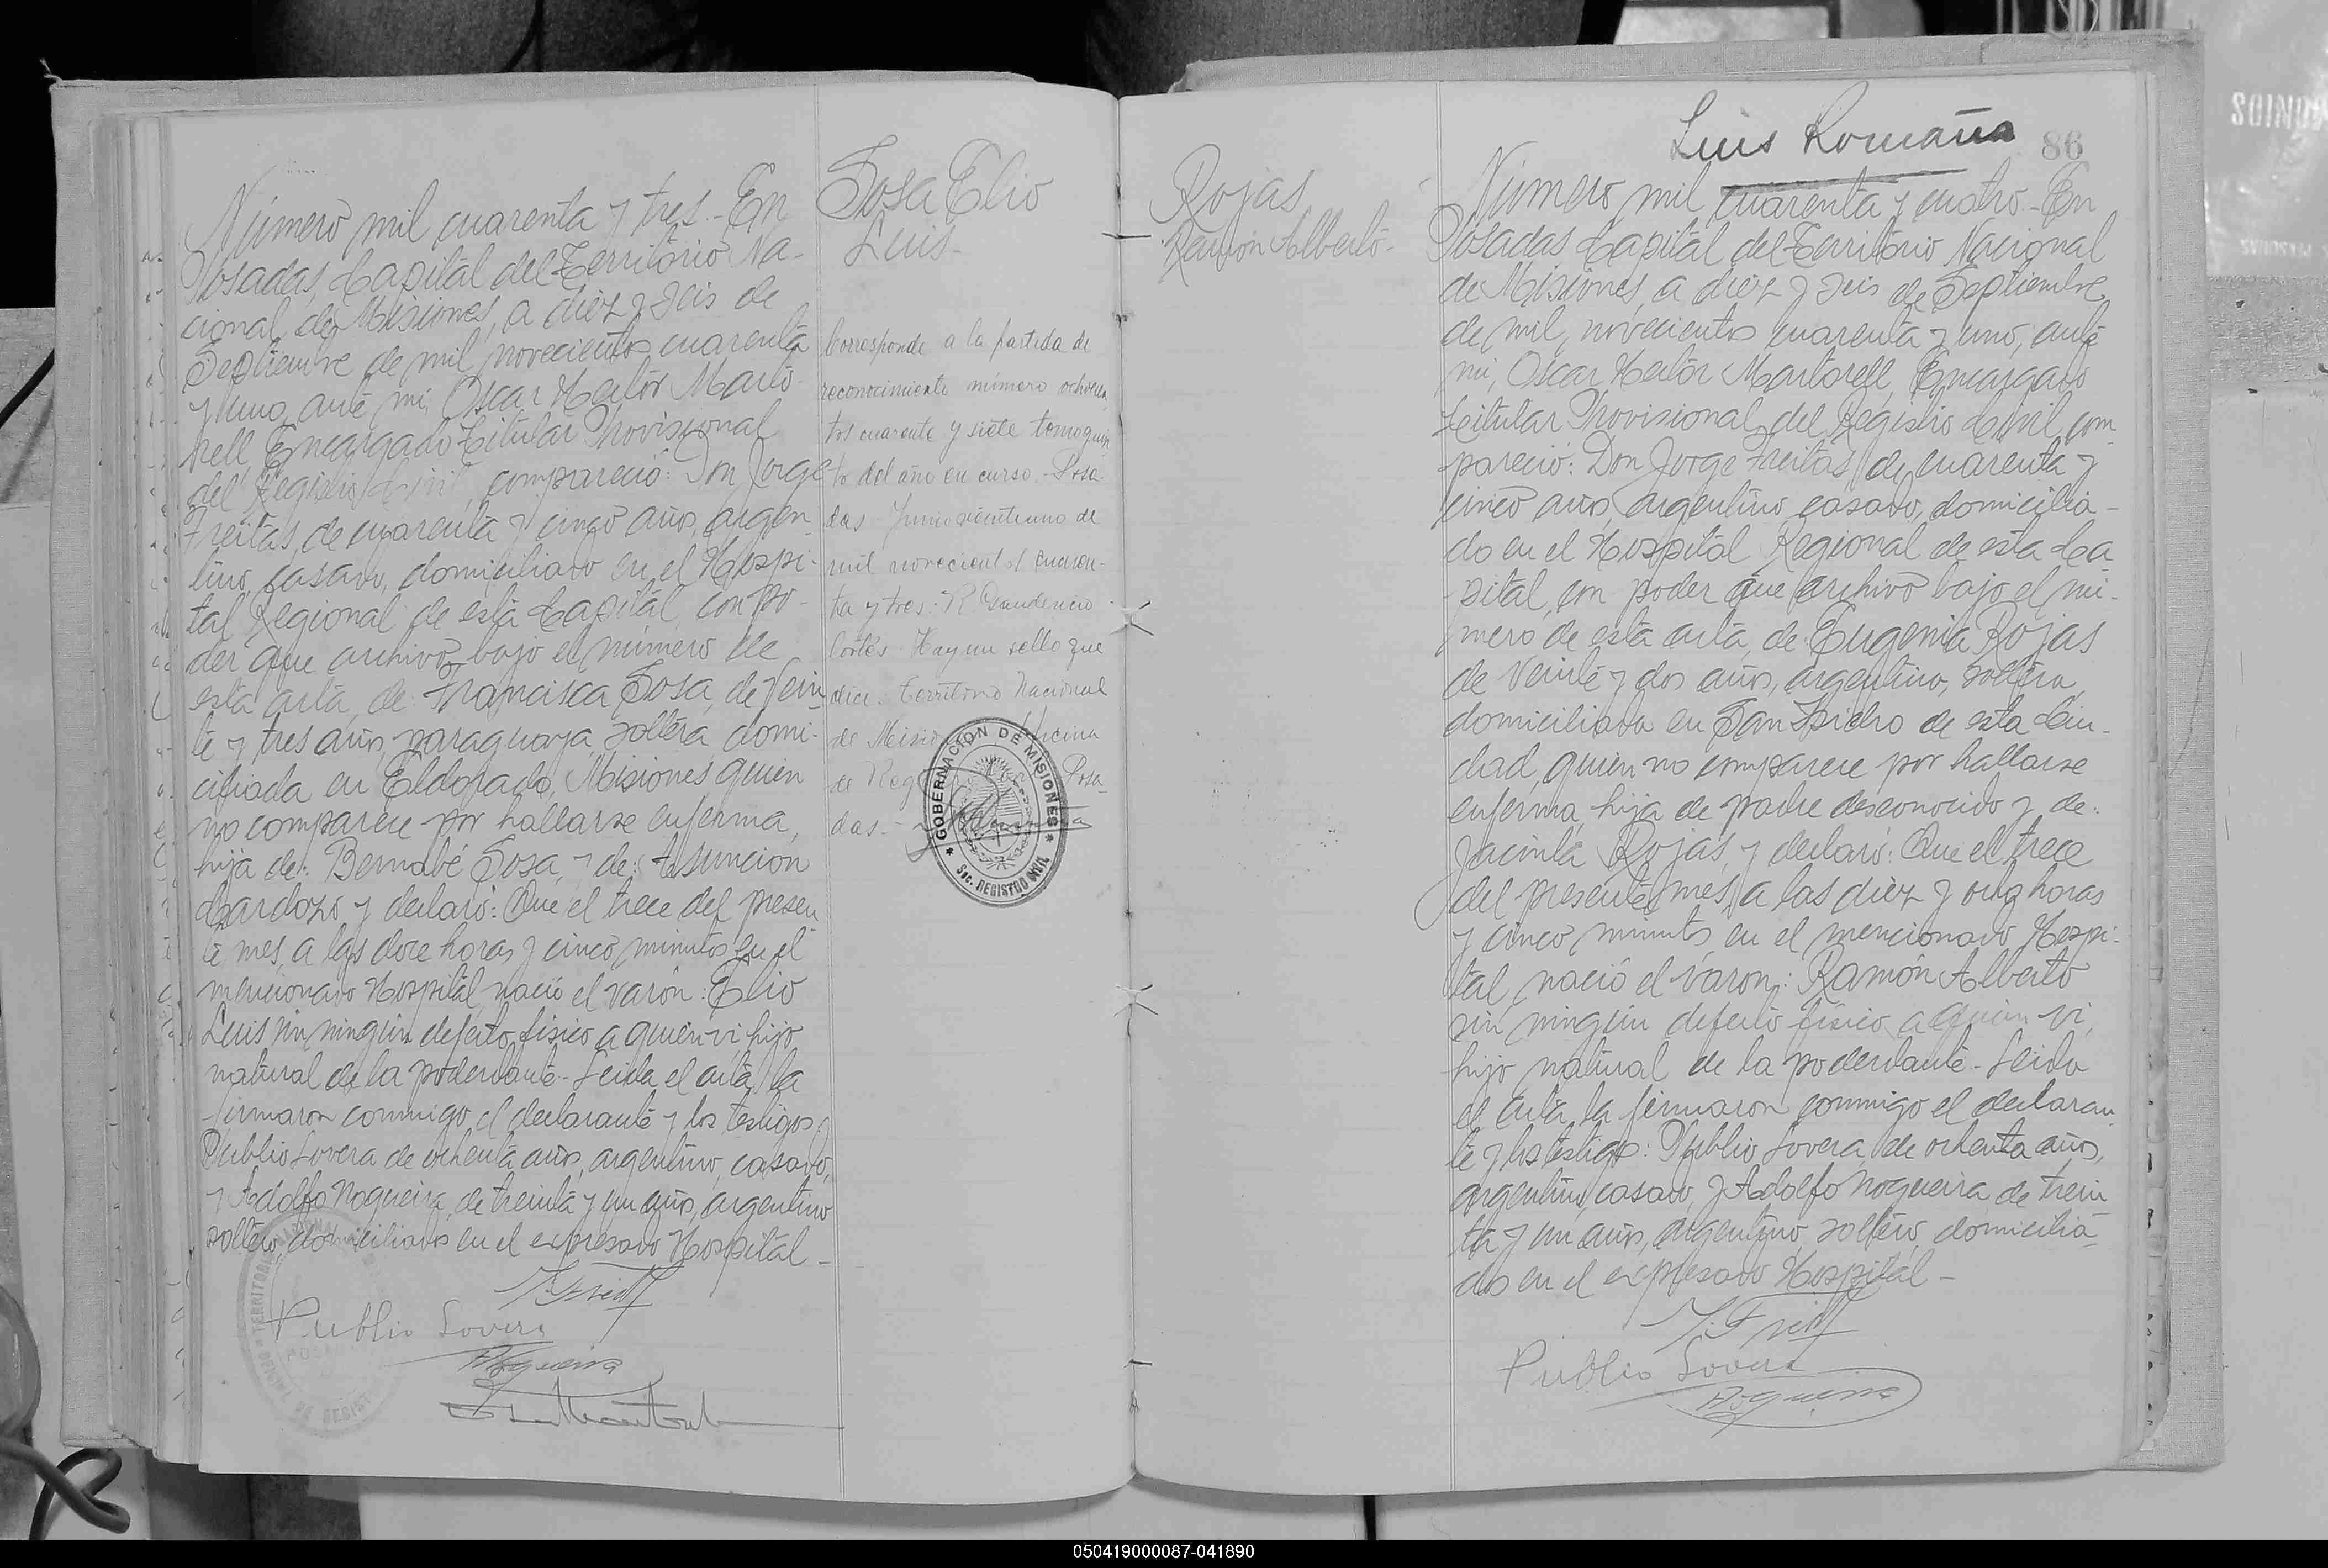 Número mil cuarenta y tres.- En
Posadas, Capital del Territorio Na-
cional de Misiones, a diez y seis de
Septiembre de mil novecientos cuarenta
y uno, ante mi, Oscar Hector Marto-
rell Encargado Titular Provisional
del Registro Civil, compareció: Don Jorge
Freitas, de cuarenta y cinco años, argen-
tino, casado, domiciliado en el Hospi-
tal Regional de esta Capital, con po-
der que archivo bajo el número de
esta acta, de: Francisca Sosa, de vein-
te y tres años, paraguaya, soltera, domi-
ciliada en Eldorado, Misiones quien
no comparece por hallarse enferma,
hija de: Bernabé Sosa, y de: Asunción
Cardozo y declaró: Que el trece del presen-
te mes, a las doce horas y cinco minutos en el
mencionado Hospital, nació el varón: Elio
Luis sin ningún defecto físico a quien vi, hijo
natural de la poderdante.- Leida el acta, la
firmaron conmigo el declarante y los testigos:
Publio Lovera de ochenta años, argentino, casado,
y Adolfo Nogueira, de treinta y un años, argentino
soltero domiciliados en el expresado Hospital-
J. Freit
Publio Lovera
ANogueira
Sosa Elio
Luis-
Corresponde a la partida de
reconocimiento número ochocien
tos cuarenta y siete tomo quin
to del año en curso.- Posa
das- Junio veintiuno de
mil novecientos cuaren-
ta y tres: R. Gaudencio
Cortés- Hay un sello que
dice: Territorio Nacional
de Misio Oficina
de Reg Posa_
das.-
GOBERNACION DE MISIONES
Sec. REGISTRO CIVIL
TERRITORIO NACIONAL
Rojas
Ramón Alberto-
Luis Romaña
86
Número mil cuarenta y cuatro.- En
Posadas Capital del Territorio Nacional
de Misiones, a diez y seis de Septiembre
de mil, novecientos cuarenta y uno, ante
mi, Oscar Hector Martorell, Encargado
Titular Provisional del Registro Civil, com
pareció: Don Jorge Freitas, de cuarenta y
cinco años, argentino casado, domicilia-
do en el Hospital Regional de esta Ca-
pital, con poder que archivo bajo el nú-
mero de esta acta, de: Eugenia Rojas
de veinte y dos años, argentino, soltera,
domiciliada en San Isidro de esta Ciu-
dad, quien no comparece por hallarse
enferma, hija de padre desconocido y de:
Jacinta Rojas, y declaró: Que el trece
del presente mes, a las diez y ocho horas
y cinco minutos, en el mencionado Hospi-
tal, nació el varon: Ramón Alberto
sin ningún defecto físico a quien vi,
hijo natural de la poderdante.- Leida
el acta, la firmaron conmigo el declaran-
te y los testigos: Publio Lovera de ochenta años,
argentino, casado, y Adolfo Nogueira de trein
ta y un años, argentino, soltero, domicilia-
dos en el expresado Hospital-
J. Freit
Publio Lovera
ANogueira
050419000087-041890